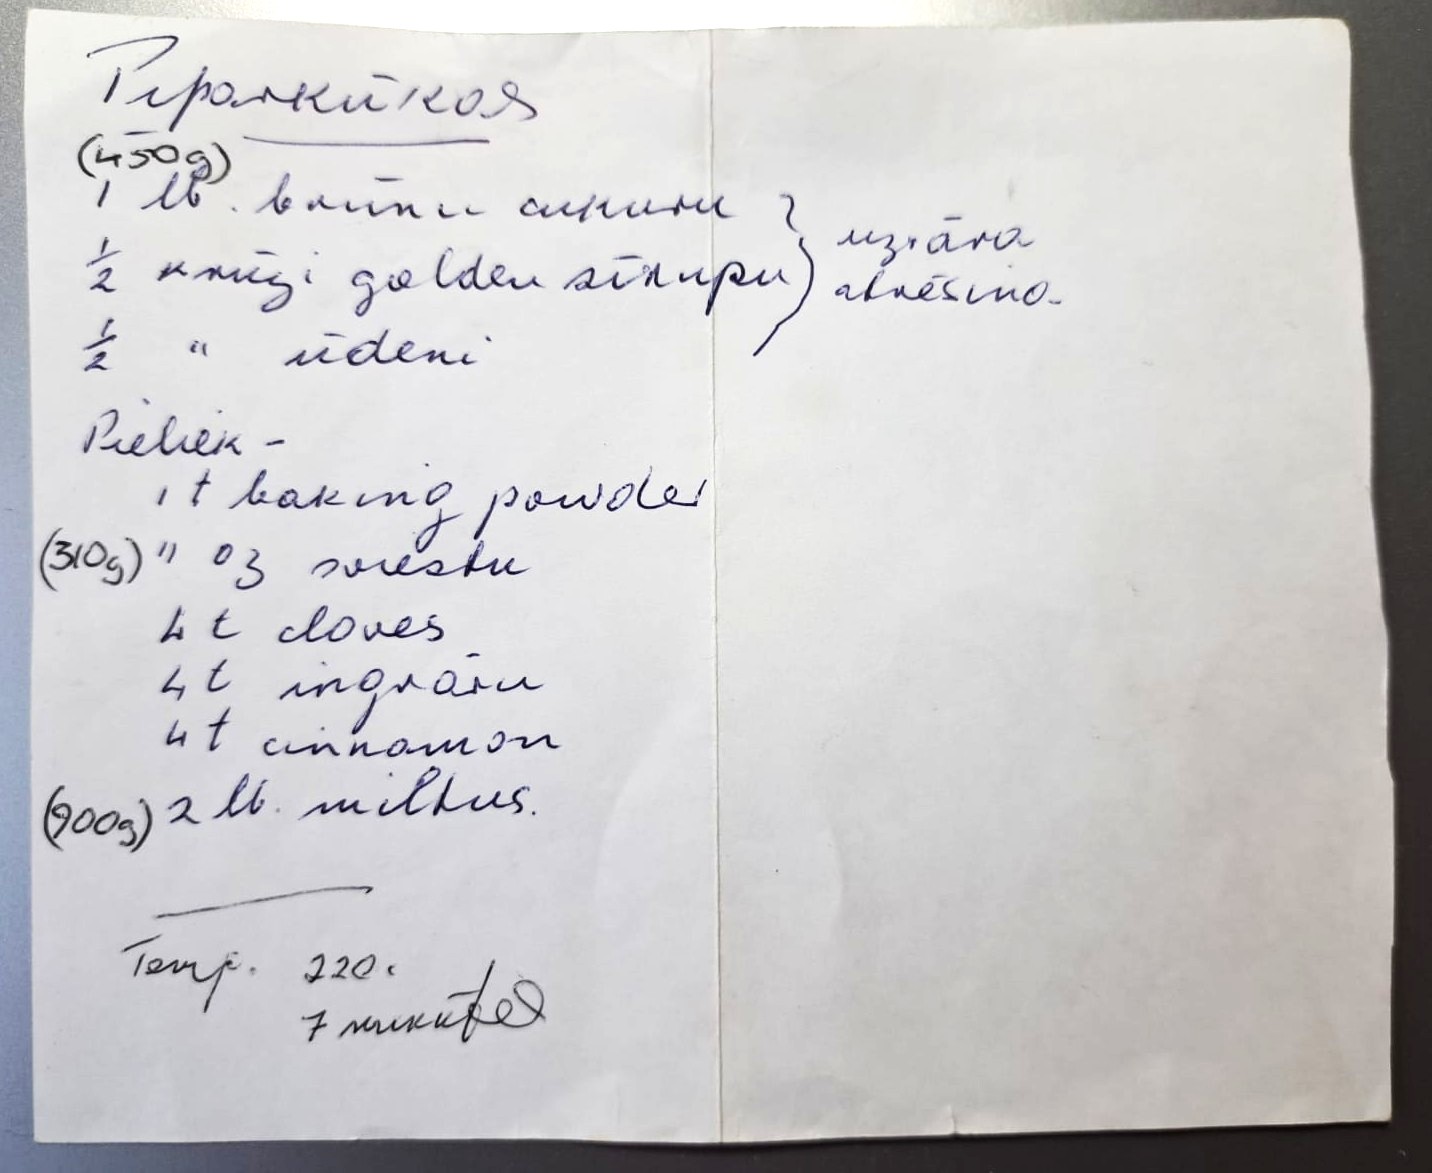 Piparkūkas
(450g)
1 lb. brūnu cukuru
½ krūzi golden sīrupu } uzvāra
atvēsina.
½ " ūdeni
Pieliek -
1 t baking powder
(310g) " oz sviestu
4 t cloves
4 t ingvāru
4 t cinnamon
(900g) 2 lb. miltus.
Temp. 220.
7 minūtes